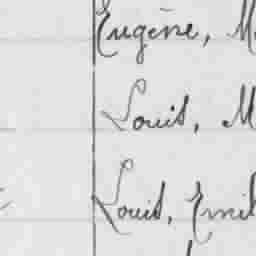 Eugène, M
Louis, M
Louis, Emil